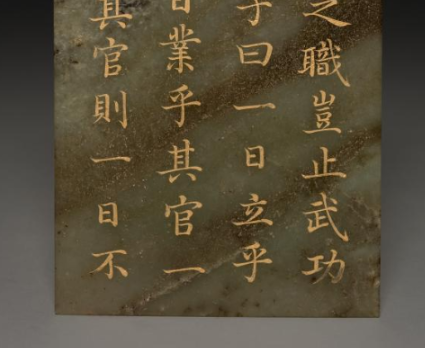 之職豈止武功
子曰一日立乎
日業乎其官一
其官則一日不